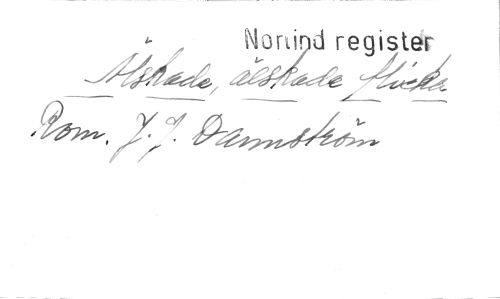 Norlind register
Älskade, älskade flicka
Rom. J. J. Dannström